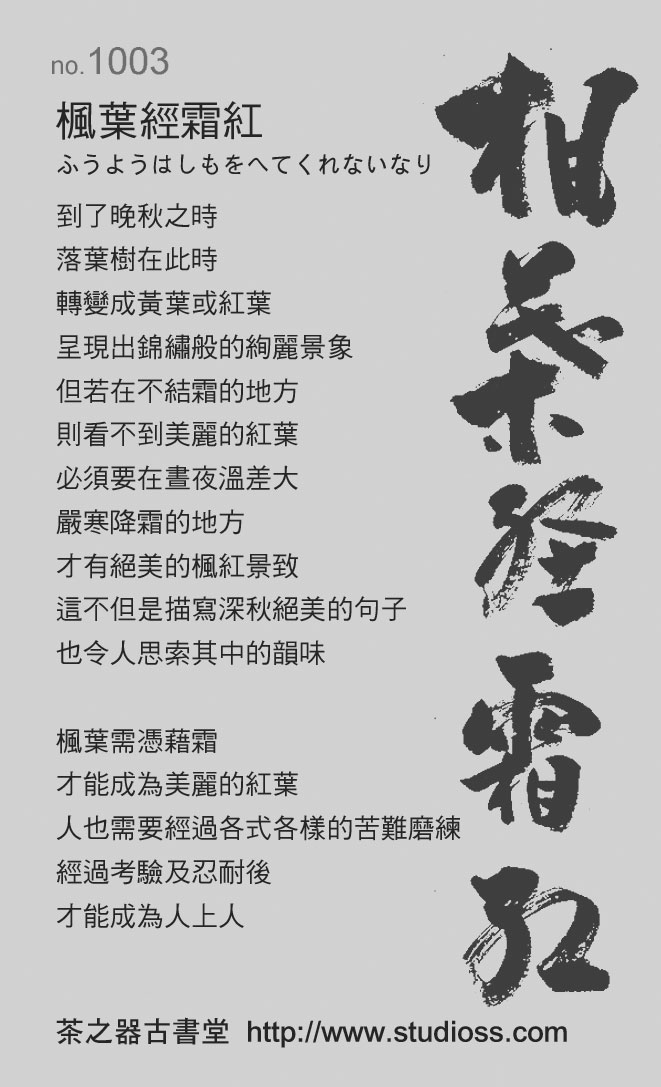 no.1003
楓葉經霜紅
ふうようはしもをへてくれないなり
到了晚秋之時
落葉樹在此時
轉變成黃葉或紅葉
呈現出錦繡般的絢麗景象
但若在不結霜的地方
則看不到美麗的紅葉
必須要在晝夜溫差大
嚴寒降霜的地方
才有絕美的楓紅景致
這不但是描寫深秋絕美的句子
也令人思索其中的韻味
楓葉需憑藉霜
才能成為美麗的紅葉
人也需要經過各式各樣的苦難磨練
經過考驗及忍耐後
才能成為人上人
茶之器古書堂 http://www.studioss.com
楓葉經霜紅